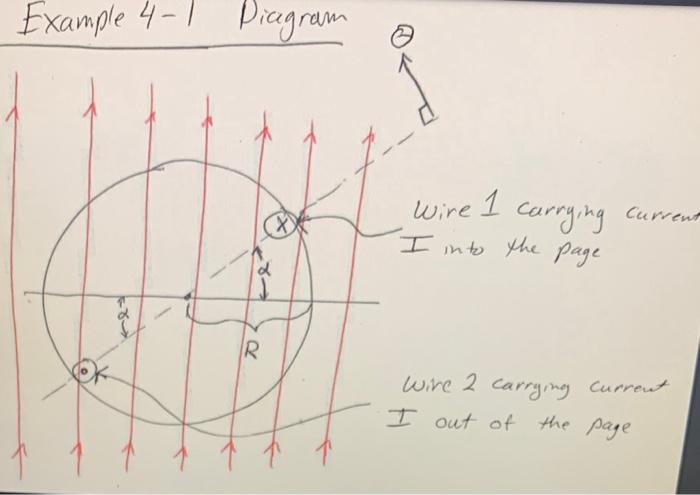 Example 4-1 Diagram
2
X
Wire 1 carrying current
I into the page
α
α
R
Wire 2 carrying current
I out of the page